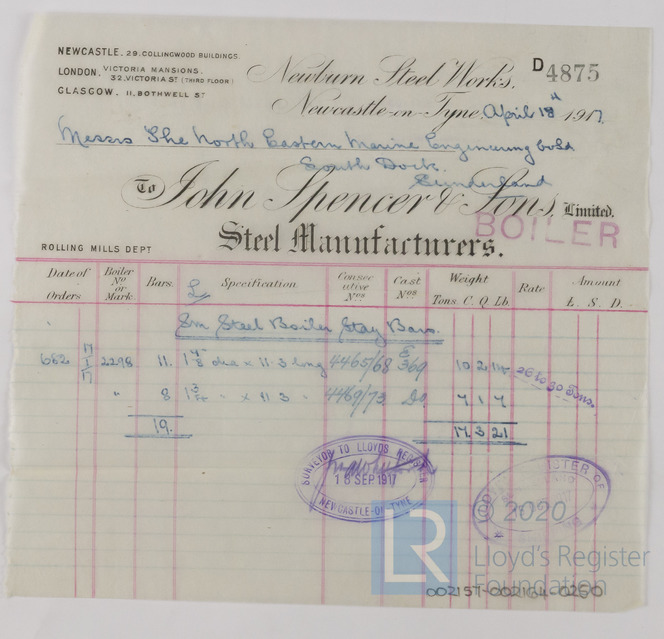 NEWCASTLE. 29. COLLINGWOOD BUILDINGS.
LONDON. VICTORIA MANSIONS.
32, VICTORIA ST (THIRD FLOOR)
GLASGOW. 11, BOTHWELL ST
D4875
Newburn Steel Works,
Newcastle-on-Tyne, April 18th 1917.
Messrs The North Eastern Marine Engineering Co Ld
South Dock.
Sunderland
To John Spencer & Sons, Limited.
BOILER
Steel Manufacturers.
ROLLING MILLS DEPT
Date of Orders Boiler No or Mark. Bars. Specification Consecutive Nos Cast Nos Weight Tons. C. Q. Lb. Rate Amount £. S. D.
Sm Steel Boiler Stay Bars.
662 17/1/17 2298 11. 1 7/8 dia x 11.3 long 4465/68 369 10 2 14 26 to 30 Tons.
" 8 1 3/4 " x 11 3 " 4469/73 Do 7 1 7
19. 17. 3 21
SURVEYOR TO LLOYDS REGISTER
18 SEP 1917
NEWCASTLE-ON-TYNE
REGISTER OF
LR
© 2020
Lloyd's Register
Foundation
002157-002164-0250